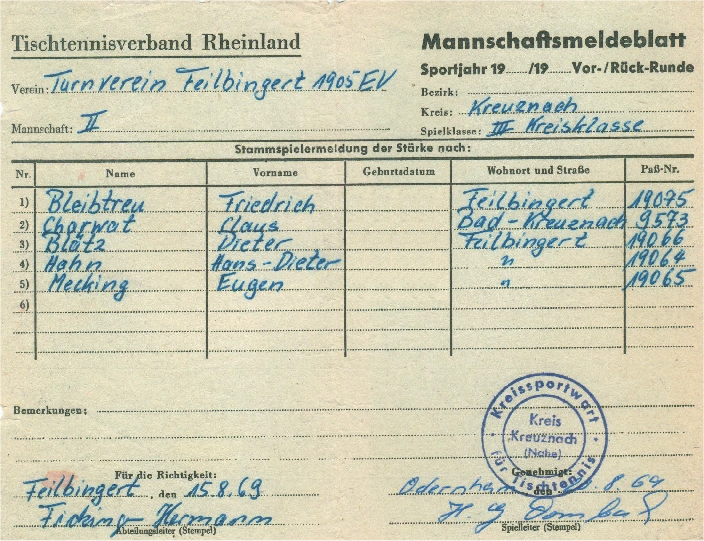 Tischtennisverband Rheinland
Mannschaftsmeldeblatt
Sportjahr 19..../19.... Vor-/Rück-Runde
Verein: Turnverein Feilbingert 1905 EV
Bezirk:
Kreis: Kreuznach
Mannschaft: II
Spielklasse: III Kreisklasse
Stammspielermeldung der Stärke nach:
Nr. Name Vorname Geburtsdatum Wohnort und Straße Paß-Nr.
1) Bleibtreu Friedrich Feilbingert 19075
2) Charwat Claus Bad-Kreuznach 9573
3) Blätz Dieter Feilbingert 19066
4) Hahn Hans-Dieter " 19064
5) Mecking Eugen " 19065
6)
Bemerkungen:
Kreissportwart
Kreis
Kreuznach
(Nahe)
für Tischtennis
Für die Richtigkeit:
Genehmigt:
Feilbingert, den 15.8.69
den 8.69
Hermann
Abteilungsleiter (Stempel)
Spielleiter (Stempel)